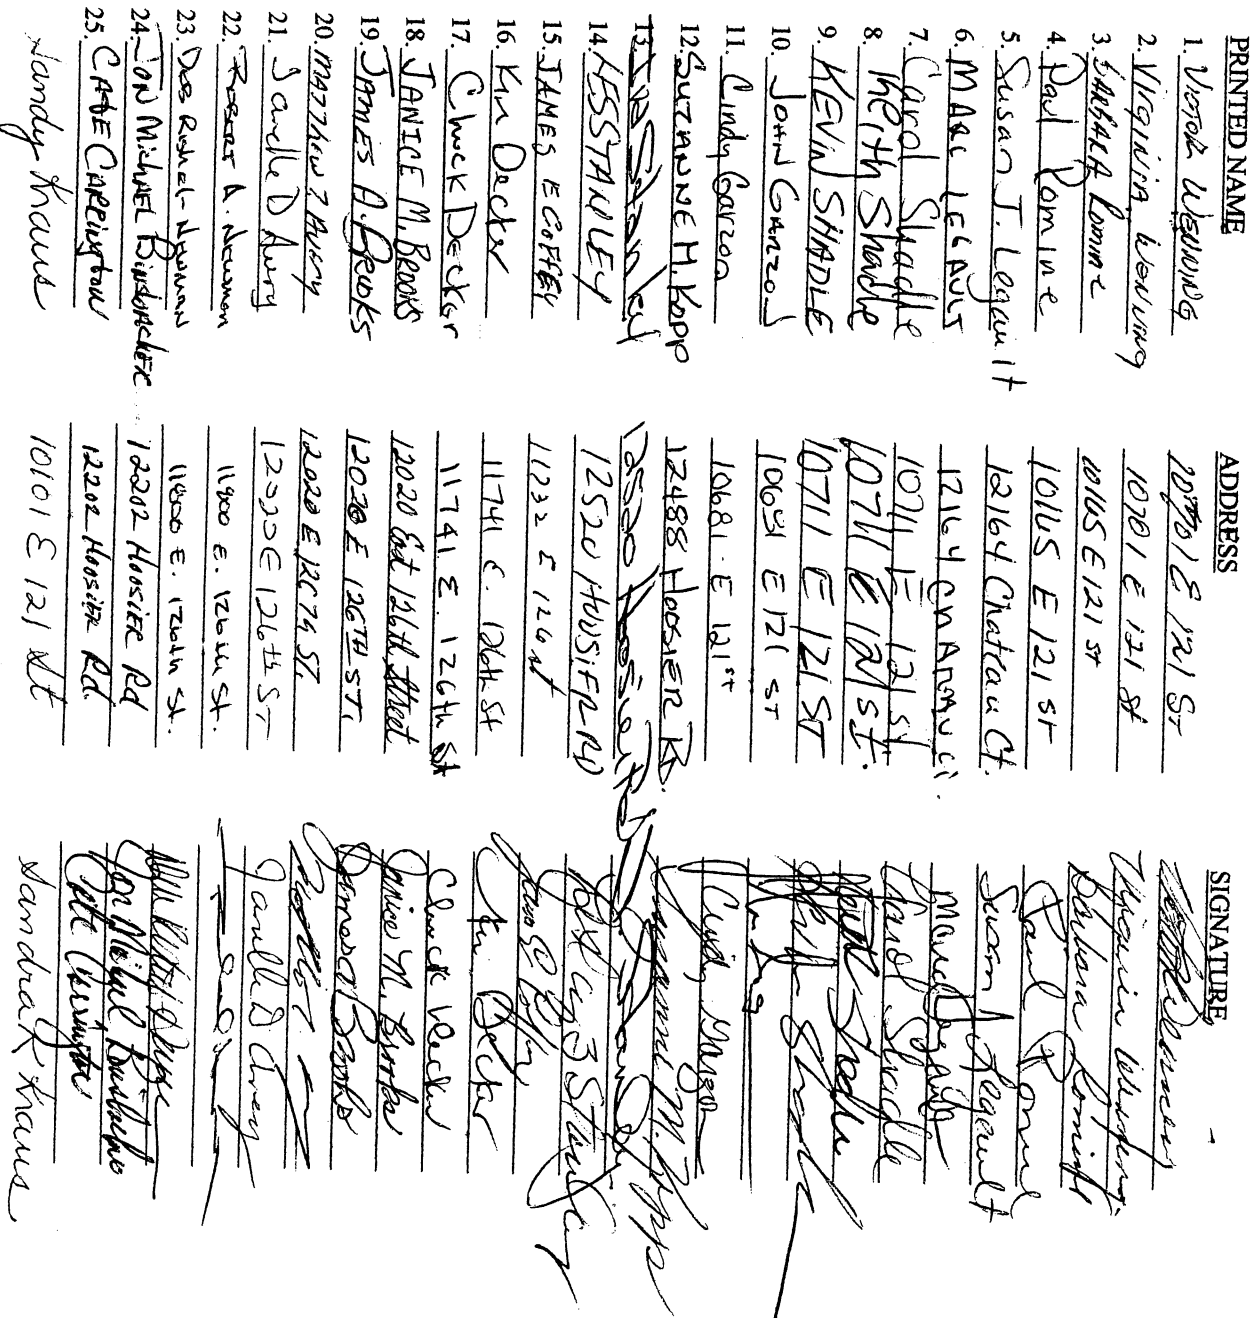 PRINTED NAME ADDRESS SIGNATURE
1. VICTOR WENNING 10701 E 121 ST
2. VIRGINIA WENNING 10701 E 121 St Virginia Wenning
3. BARBARA Romine 10165 E 121 ST Barbara Romine
4. Paul Romine 10165 E 121 ST Paul Romine
5. Susan J. Legault 12164 Chateau Ct. Susan J Legault
6. MARC LEGAULT 12164 CHATEAU Ct. Marc Legault
7. Carol Shadle 10711 E 121 st Carol Shadle
8. Keith Shadle 10711 E 121 st. Keith Shadle
9. KEVIN SHADLE 10711 E 121 ST
10. JOHN GARZON 10681 E 121 ST
11. Cindy Garzon 10681 E 121 ST Cindy Garzon
12. SUZANNE H. KOPP 12488 HOOSIER RD. Suzanne M. Kopp
13. Stanley 12520 Hoosier Rd
14. LES STANLEY 12520 HOOSIER RD
15. JAMES E COFFEY 11732 E 126 st
16. Kim Decker 11741 E. 126th St Kim Decker
17. Chuck Decker 11741 E. 126th St Chuck Decker
18. JANICE M. BROOKS 12020 East 126th Street Janice M. Brooks
19. JAMES A. BROOKS 12020 E 126TH ST. James A Brooks
20. MATTHEW J AVERY 12020 E 126TH ST.
21. Janelle D Avery 12020 E 126th ST Janelle D Avery
22. ROBERT A. Newman 11800 E. 126th St.
23. DEB RISHEL-NEWMAN 11800 E. 126th St.
24. JON MICHAEL BINDBACHER 12202 HOOSIER Rd Jon Michael
25. CATE CARRINGTON 12202 HOOSIER Rd. Cate Carrington
Sandy Kraus 10101 E 121 St Sandra K Kraus